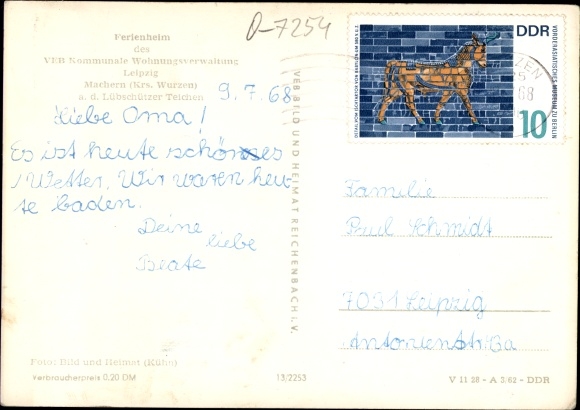 D-7254
Ferienheim
des
VEB Kommunale Wohnungsverwaltung
Leipzig
Machern (Krs. Wurzen)
a. d. Lübschützer Teichen
9.7.68
Liebe Oma!
Es ist heute schönes
Wetter. Wir waren heu-
te baden.
Deine
liebe
Beate
Foto: Bild und Heimat (Kühn)
Verbraucherpreis 0,20 DM
13/2253
VEB BILD UND HEIMAT REICHENBACH i. V.
DDR
10
VORDERASIATISCHES MUSEUM ZU BERLIN
DETAIL VOM ISCHTARTOR VON BABYLON UM 580 V.U.Z.
ZEN
68
Familie
Paul Schmidt
7031 Leipzig
Antonienstr.
V 11 28 - A 3/62 - DDR